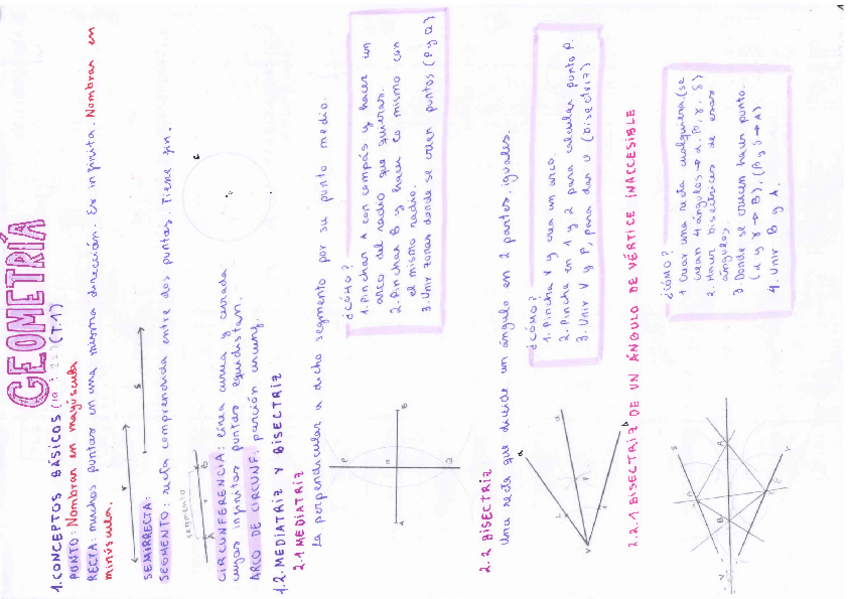 GEOMETRÍA
1. CONCEPTOS BÁSICOS (T.1)
PUNTO: Nombrar en mayúscula
RECTA: muchos puntos en una misma dirección. Es infinita. Nombrar en
minúscula.
r
s
SEMIRRECTA:
SEGMENTO: recta comprendida entre dos puntos. Tiene fin.
segmento
A
B
c
CIRCUNFERENCIA: línea curva y cerrada
cuyos infinitos puntos equidistan.
ARCO DE CIRCUNF.: porción circunf.
1.2. MEDIATRIZ Y BISECTRIZ
2.1 MEDIATRIZ
La perpendicular a dicho segmento por su punto medio.
P
A
B
Q
¿CÓMO?
1. Pinchar A con compás y hacer un
arco del radio que quieras.
2. Pinchar B y hacer lo mismo con
el mismo radio.
3. Unir zonas donde se creen puntos (P y Q)
2.2 BISECTRIZ
Una recta que divide un ángulo en 2 partes iguales.
a
b
V
P
1
¿CÓMO?
1. Pincha V y crea un arco.
2. Pincha en 1 y 2 para calcular punto P.
3. Unir V y P, para dar u (bisectriz)
2.2.1 BISECTRIZ DE UN ÁNGULO DE VÉRTICE INACCESIBLE
s
r
A
B
V
¿CÓMO?
1 Crear una recta cualquiera (se
crean 4 ángulos → α, β, γ, δ)
2. Hacer bisectrices de esos
ángulos.
3 Donde se crucen hacer punto.
(α y γ → B), (β y δ → A)
4. Unir B y A.
1